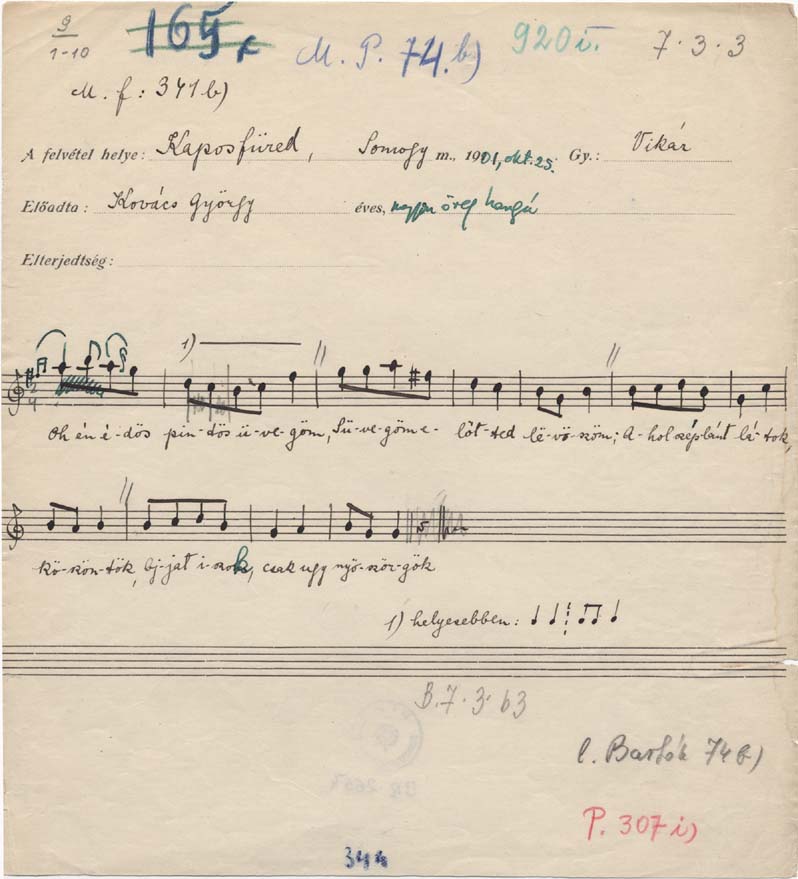 9/1-10 165. M. P. 74.b) 920 i. 7·3·3
M. f: 341 b)
A felvétel helye: Kaposfüred, Somogy m., 1901, okt. 25. Gy.: Vikár
Előadta: Kovács György éves, nagyon öreg hangú
Elterjedtség:
1)
2/4
Oh én é-dös pin-dös ü-ve-göm, Sü-ve-göm e-lőt-ted lë-vö-szöm; A-hol szép lánt lá-tok,
kö-szön-tök, bj-ját i-szok, csak ugy nyö-ször-gök
1) helyesebben:
B. 7·3·63
l. Bartók 74 b)
P. 307 i)
344